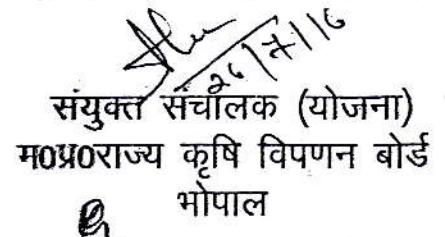 26/7/16
संयुक्त संचालक (योजना)
म0प्र0राज्य कृषि विपणन बोर्ड
भोपाल